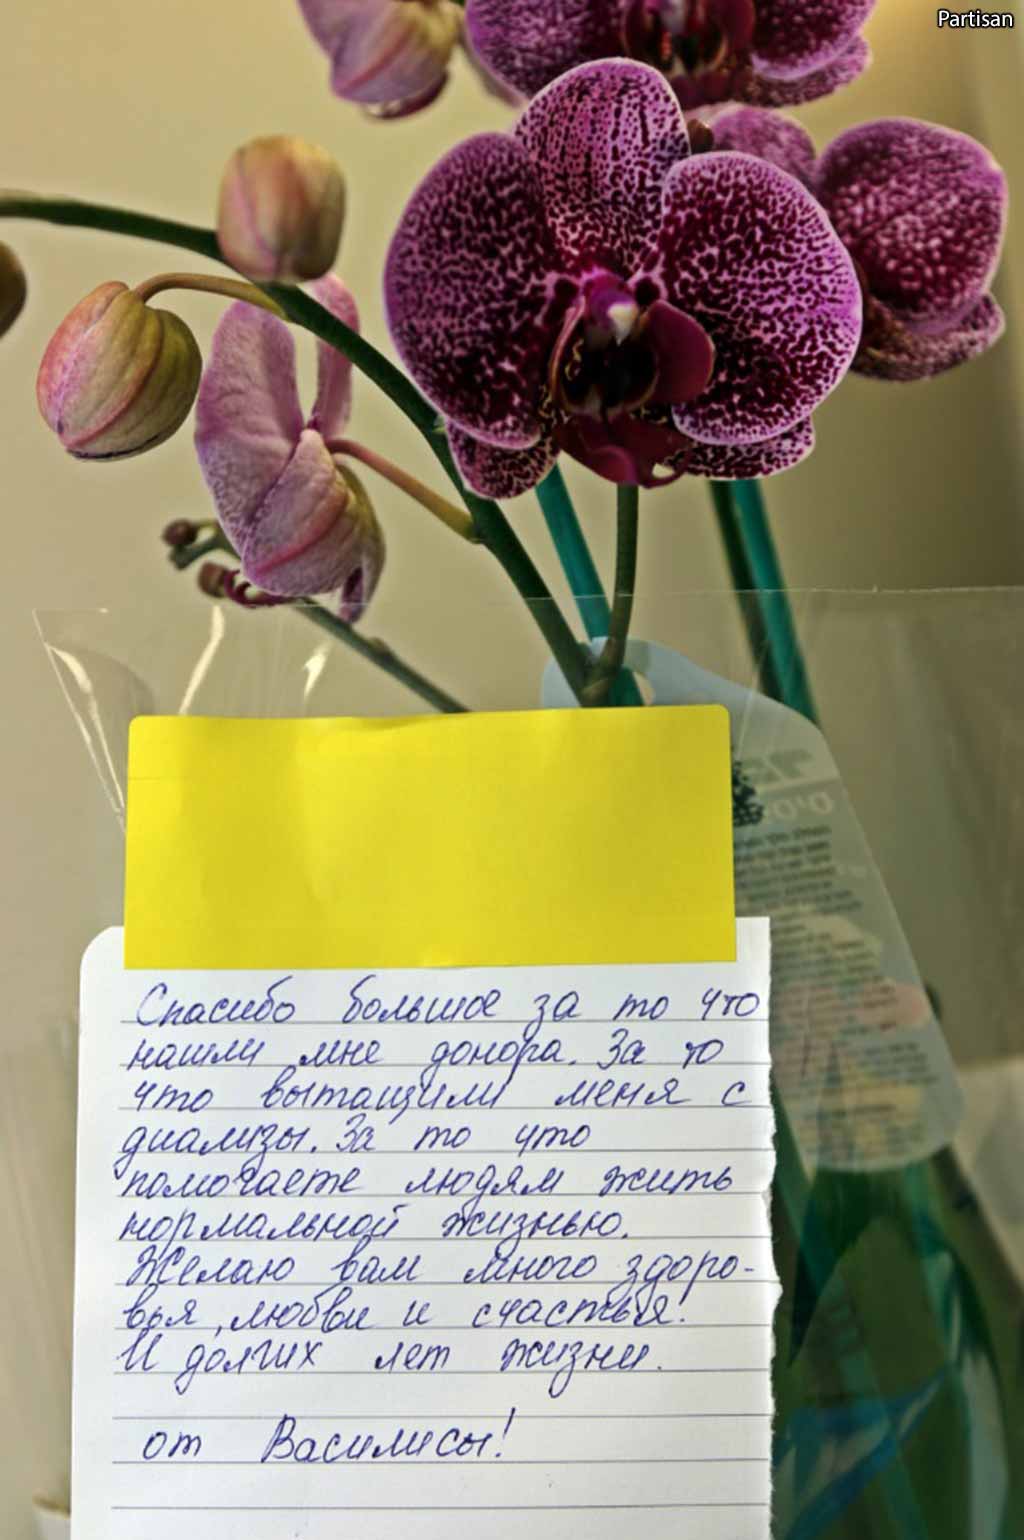 Partisan
Спасибо большое за то что
нашли мне донора. За то
что вытащили меня с
диализы. За то что
помогаете людям жить
нормальной жизнью.
Желаю вам много здоро-
вья, любви и счастья!
И долгих лет жизни.
от Василисы!